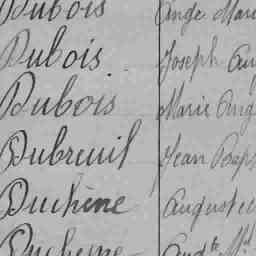 Dubois Ange Mari
Dubois Joseph Au
Dubois Marie Aug
Dubreuil Jean Bap
Duchêne August
Duchesne